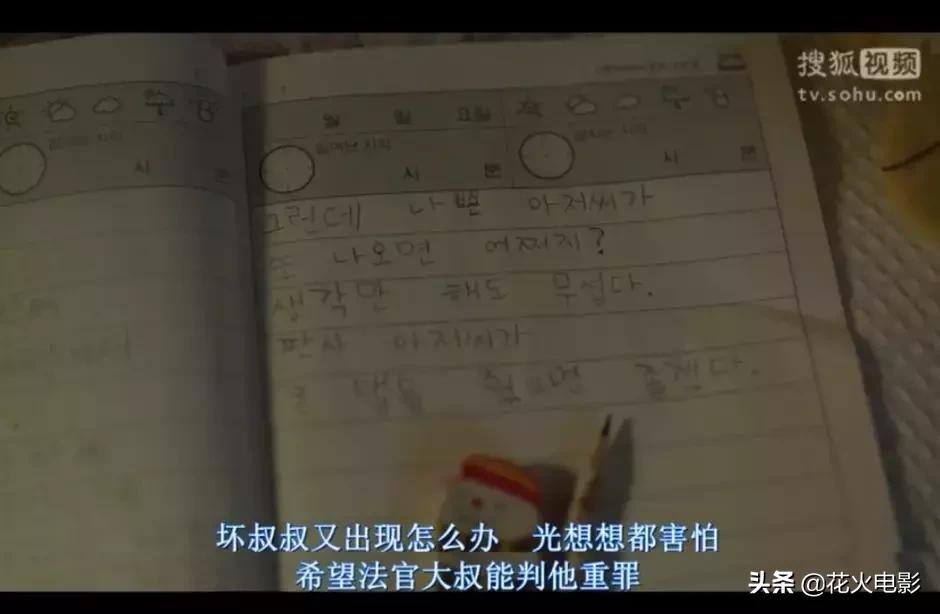 搜狐视频
tv.sohu.com
월 일 요일
시 분
시 분
그런데 나쁜 아저씨가
또 나오면 어찌지?
생각만 해도 무섭다.
판사 아저씨가
坏叔叔又出现怎么办 光想想都害怕
希望法官大叔能判他重罪
头条 @花火电影